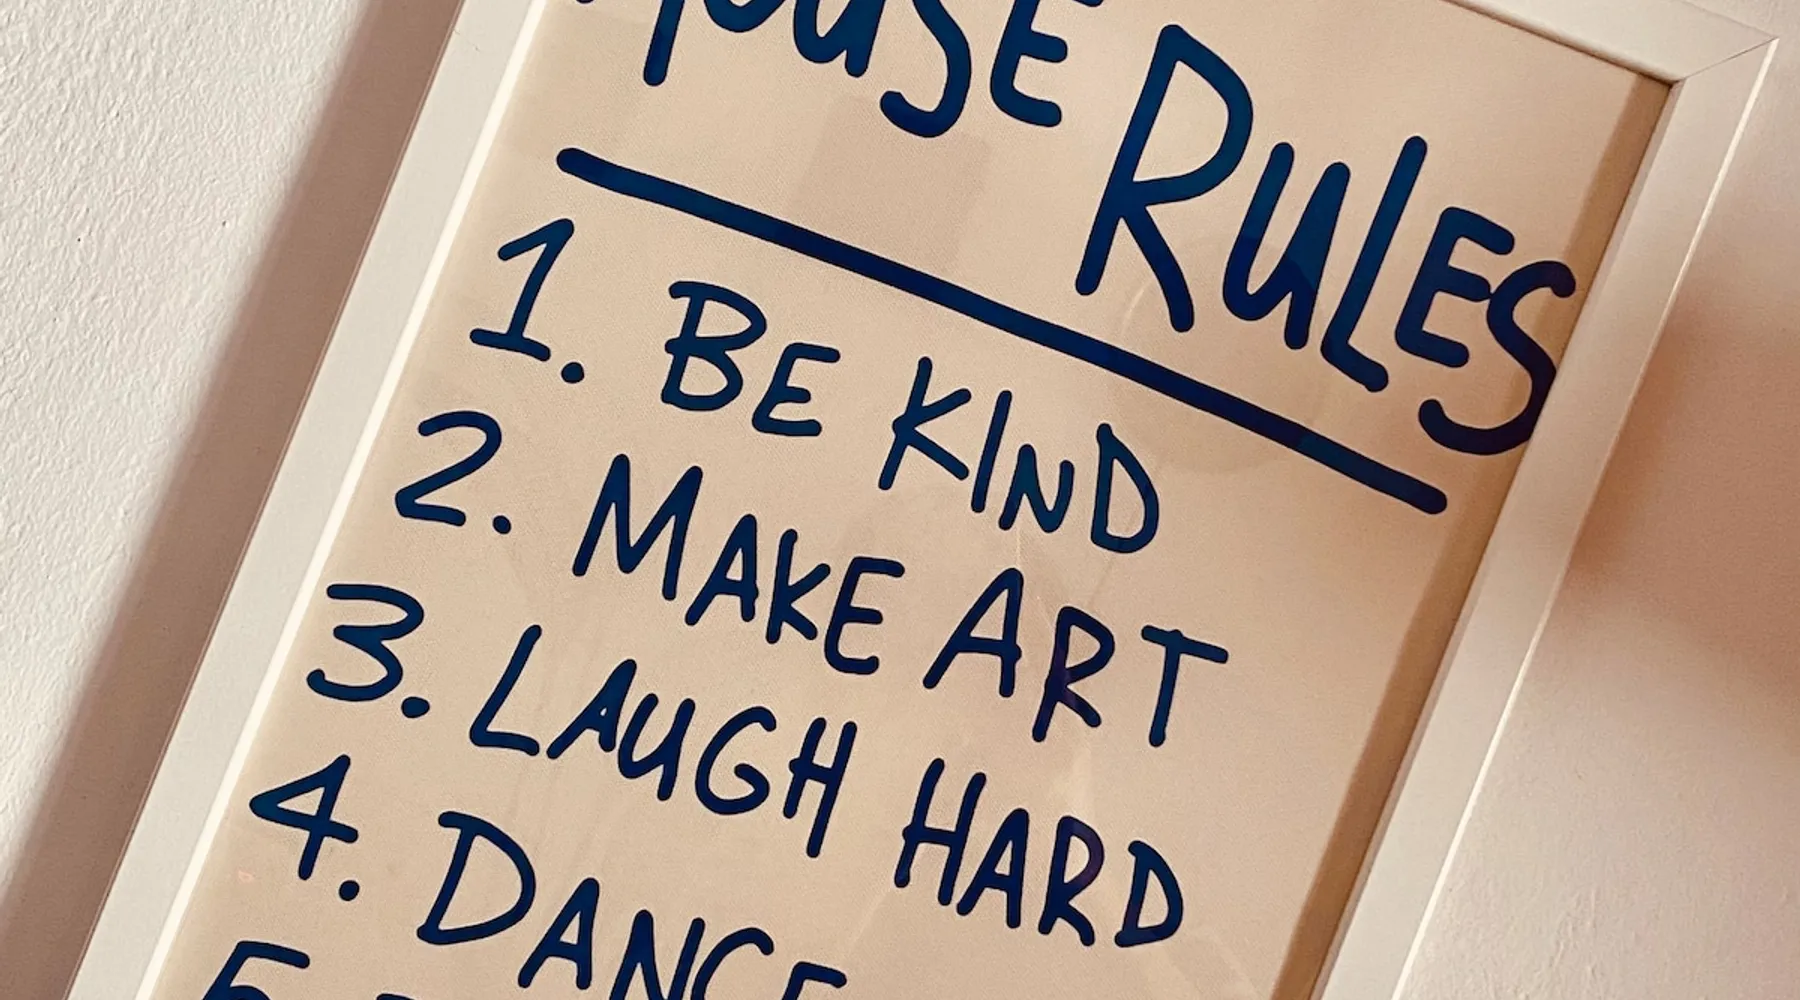 House Rules
1. BE KIND
2. MAKE ART
3. LAUGH HARD
4. DANCE
5.